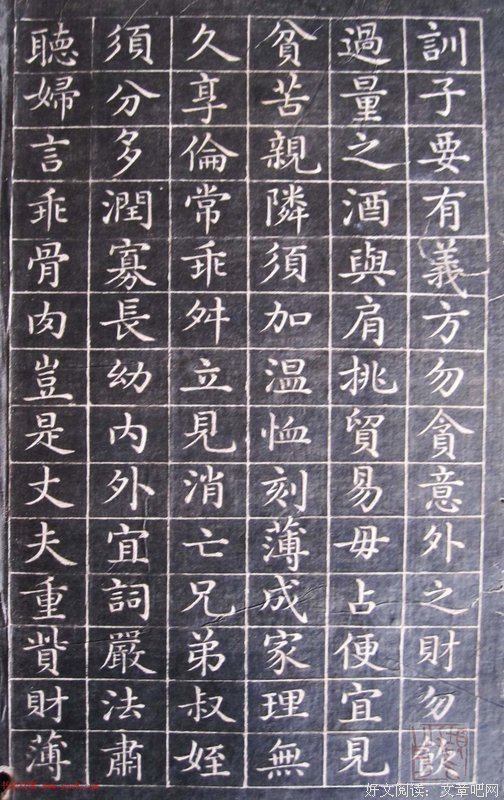 訓子要有義方勿貪意外之財勿飲
過量之酒與肩挑貿易毋占便宜見
貧苦親隣須加温恤刻薄成家理無
久享倫常乖舛立見消亡兄弟叔姪
須分多潤寡長幼內外宜詞嚴法肅
聽婦言乖骨肉豈是丈夫重貲財薄
好文阅读：文章吧网